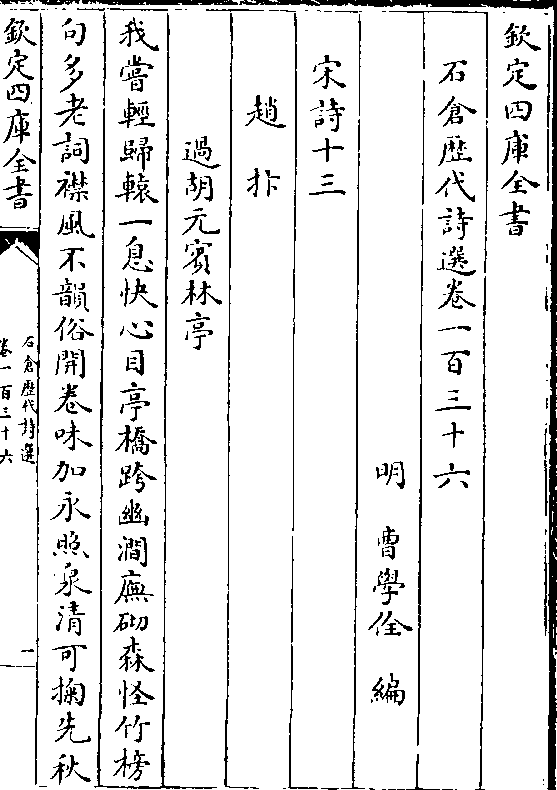 欽定四庫全書
石倉歷代詩選卷一百三十六
明 曹學佺 編
宋詩十三
趙抃
過胡元賓林亭
我嘗輕歸轅一息快心目亭橋跨幽澗廡砌森怪竹榜
句多老詞襟風不韻俗開卷味加永照泉清可掬先秋
欽定四庫全書
石倉歷代詩選
卷一百三十六
一